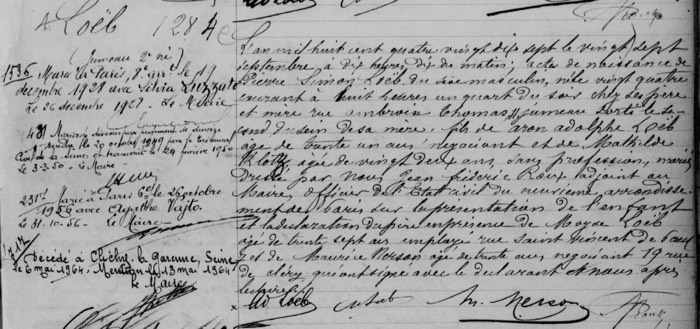 Loëb 1284
(Jumeau 2e né)
1536
Marié à Paris, 8e arrt le 19
décembre 1928 avec Silvia Luzzato
le 26 décembre 1928. Le Maire
431 Mariage dissous par jugement de divorce
rendu le 20 octobre 1949 par le Tribunal
Civil de la Seine et transcrit le 24 janvier 1950
le 3.3.50. le Maire
231 Marié à Paris 6e le 26 octobre
1956 avec Vajto.
le 31-10-56 - le Maire
Décédé à Clichy la Garenne, Seine
le 6 mai 1964. Mention le 13 mai 1964
le Maire
L'an mil huit cent quatre vingt dix sept le vingt sept
septembre à dix heures dix du matin; acte de naissance de
Pierre Simon Loëb du sexe masculin, né le vingt quatre
courant à huit heures un quart du soir chez ses père
et mère rue Ambroise Thomas jumeau sorti le se-
cond du sein de sa mère, fils de Aron Adolphe Loëb
âgé de trente un ans, négociant et de Mathilde
Klotz âgée de vingt deux ans, sans profession, mariés
Dressé par nous Jean Fréderic Roux adjoint au
Maire, officier de l'Etat civil du neuvième arrondisse-
ment de Paris sur la présentation de l'enfant
et la déclaration du père en présence de Moyse Loëb
âgé de trente sept ans employé rue Saint Vincent de Paul
et de Maurice Nerson âgé de trente ans négociant 19 rue
de Cléry qui ont signé avec le déclarant et nous après
lecture.
Ad Loëb M Loeb M. Nerson Roux